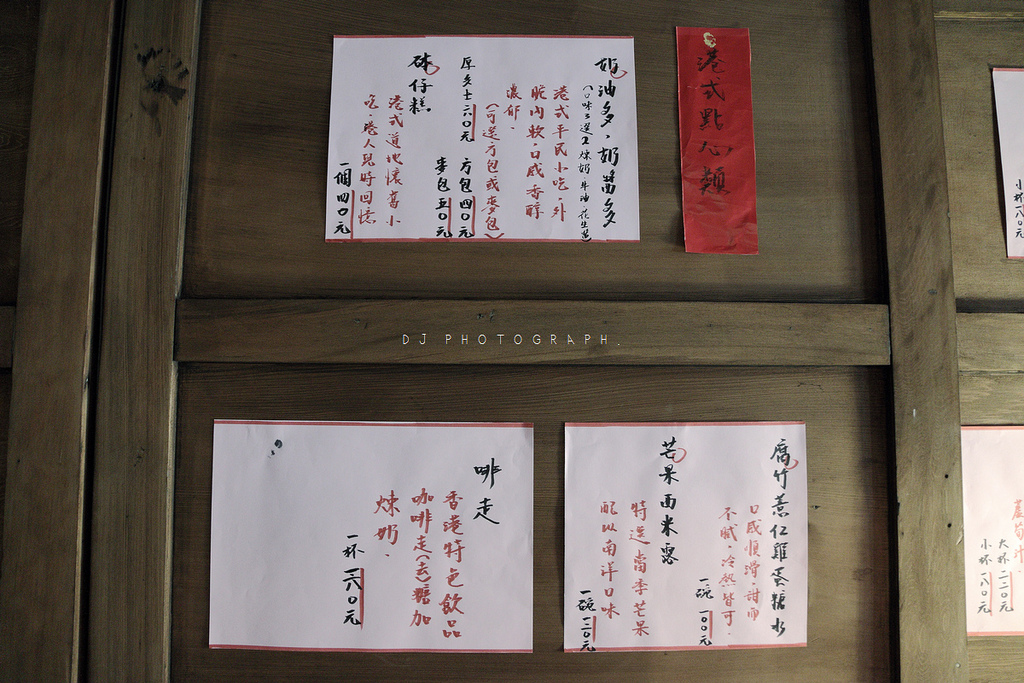 港式點心類
奶油多．奶醬多
(口味三選一煉奶．牛油．花生醬)
港式平民小吃．外
脆內軟．口感香醇
濃郁．
(可選方包或麥包)
厚多士六0元 方包四0元
麥包五0元
砵仔糕
港式道地懷舊小
吃．港人兒時回憶
一個四0元
小杯一八0元
DJ PHOTOGRAPH.
腐竹薏仁雞蛋糖水
口感順滑．甜而
不膩．冷熱皆可．
一碗一00元
芒果西米露
特選當季芒果
配以南洋口味
一碗一二0元
啡走
香港特色飲品
咖啡走(去)糖加
煉奶．
一杯一六0元
大杯二二0元
小杯一八0元